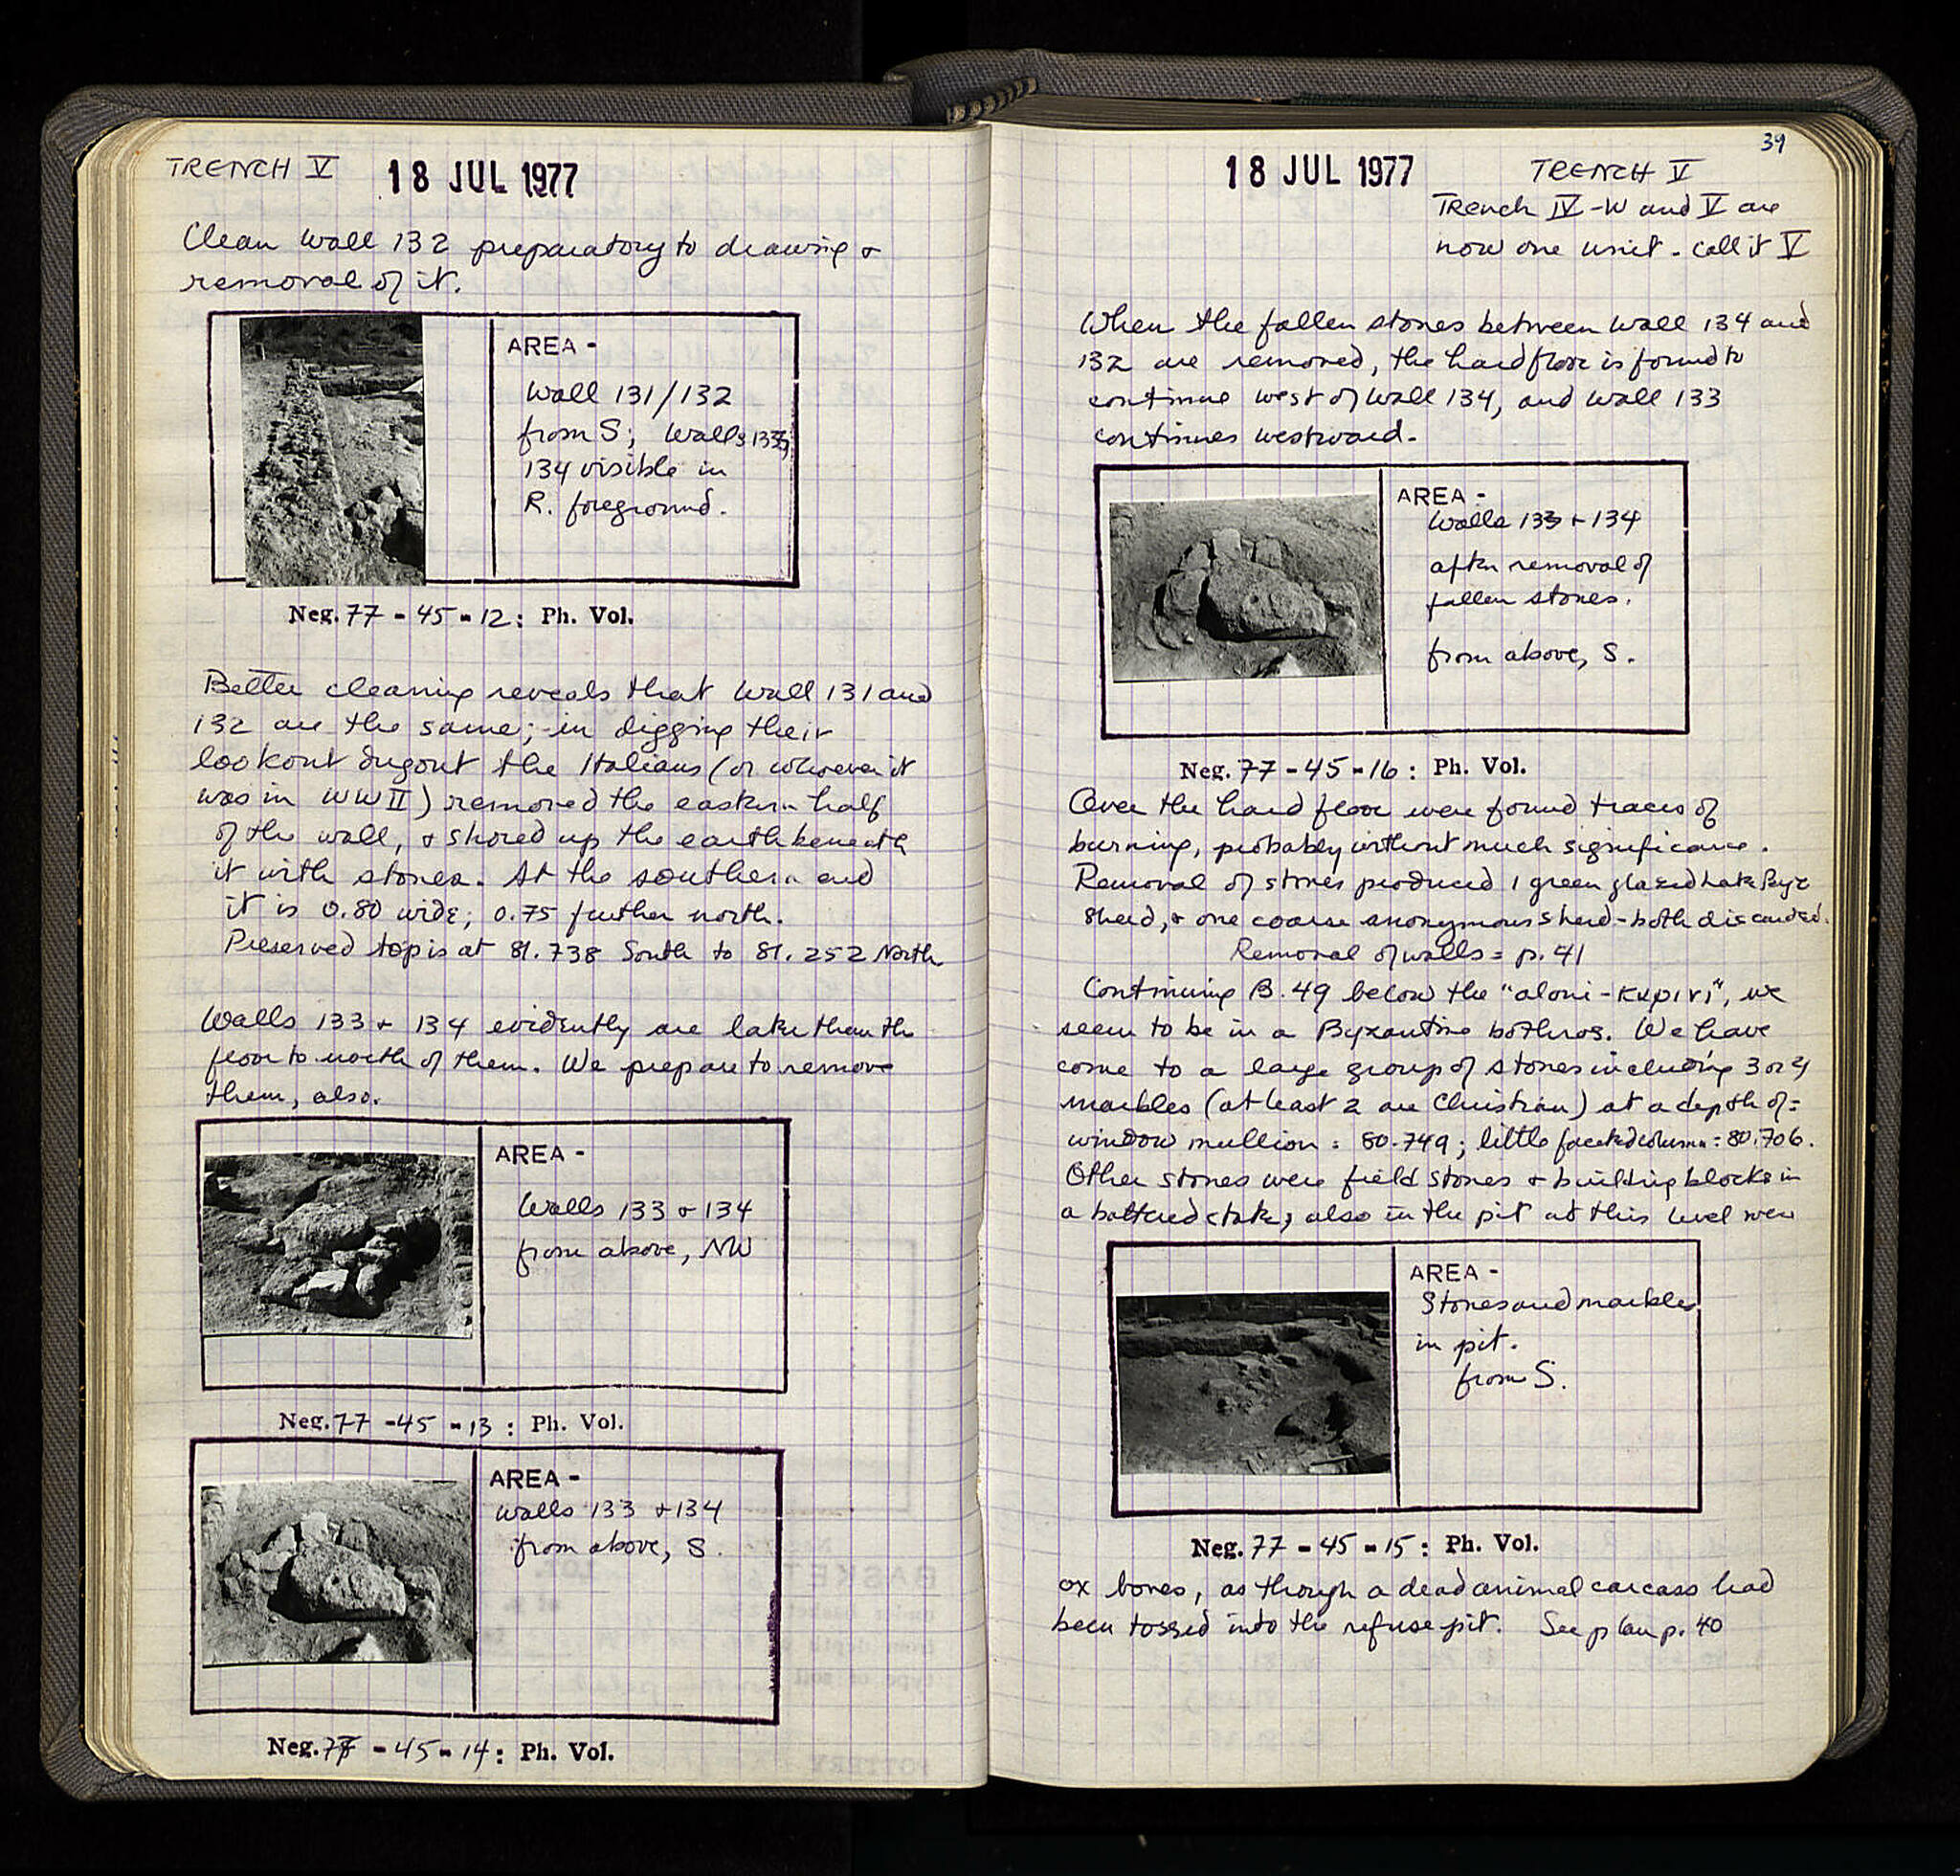 TRENCH V 18 JUL 1977
Clean Wall 132 preparatory to drawing +
removal of it.
AREA -
Wall 131/132
from S; Walls 133,
134 visible in
R. foreground.
Neg. 77 - 45 - 12 : Ph. Vol.
Better cleaning reveals that Wall 131 and
132 are the same; in digging their
lookout dugout the Italians (or whoever it
was in WW II) removed the eastern half
of the wall, + shored up the earth beneath
it with stones. At the southern end
it is 0.80 wide; 0.75 further north.
Preserved top is at 81.738 South to 81.252 North
Walls 133 + 134 evidently are later than the
floor to north of them. We prepare to remove
them, also.
AREA -
Walls 133 + 134
from above, NW
Neg. 77 - 45 - 13 : Ph. Vol.
AREA -
Walls 133 + 134
from above, S.
Neg. 77 - 45 - 14 : Ph. Vol.
39
18 JUL 1977 TRENCH V
Trench IV-W and V are
now one unit - call it V
When the fallen stones between Wall 134 and
132 are removed, the hard floor is found to
continue west of Wall 134, and Wall 133
continues westward.
AREA -
Walls 133 + 134
after removal of
fallen stones.
from above, S.
Neg. 77 - 45 - 16 : Ph. Vol.
Over the hard floor were found traces of
burning, probably without much significance.
Removal of stones produced 1 green glazed late Byz
sherd, + one coarse anonymous sherd - both discarded.
Removal of walls = p. 41
Continuing B. 49 below the "aloni-", we
seem to be in a Byzantine bothros. We have
come to a large group of stones including 3 or 4
marbles (at least 2 are Christian) at a depth of =
window mullion : 80.749; little faceted column : 80.706.
Other stones were field stones + building blocks in
a battered state; also in the pit at this level were
AREA -
Stones and marbles
in pit.
from S.
Neg. 77 - 45 - 15 : Ph. Vol.
ox bones, as though a dead animal carcass had
been tossed into the refuse pit. See plan p. 40